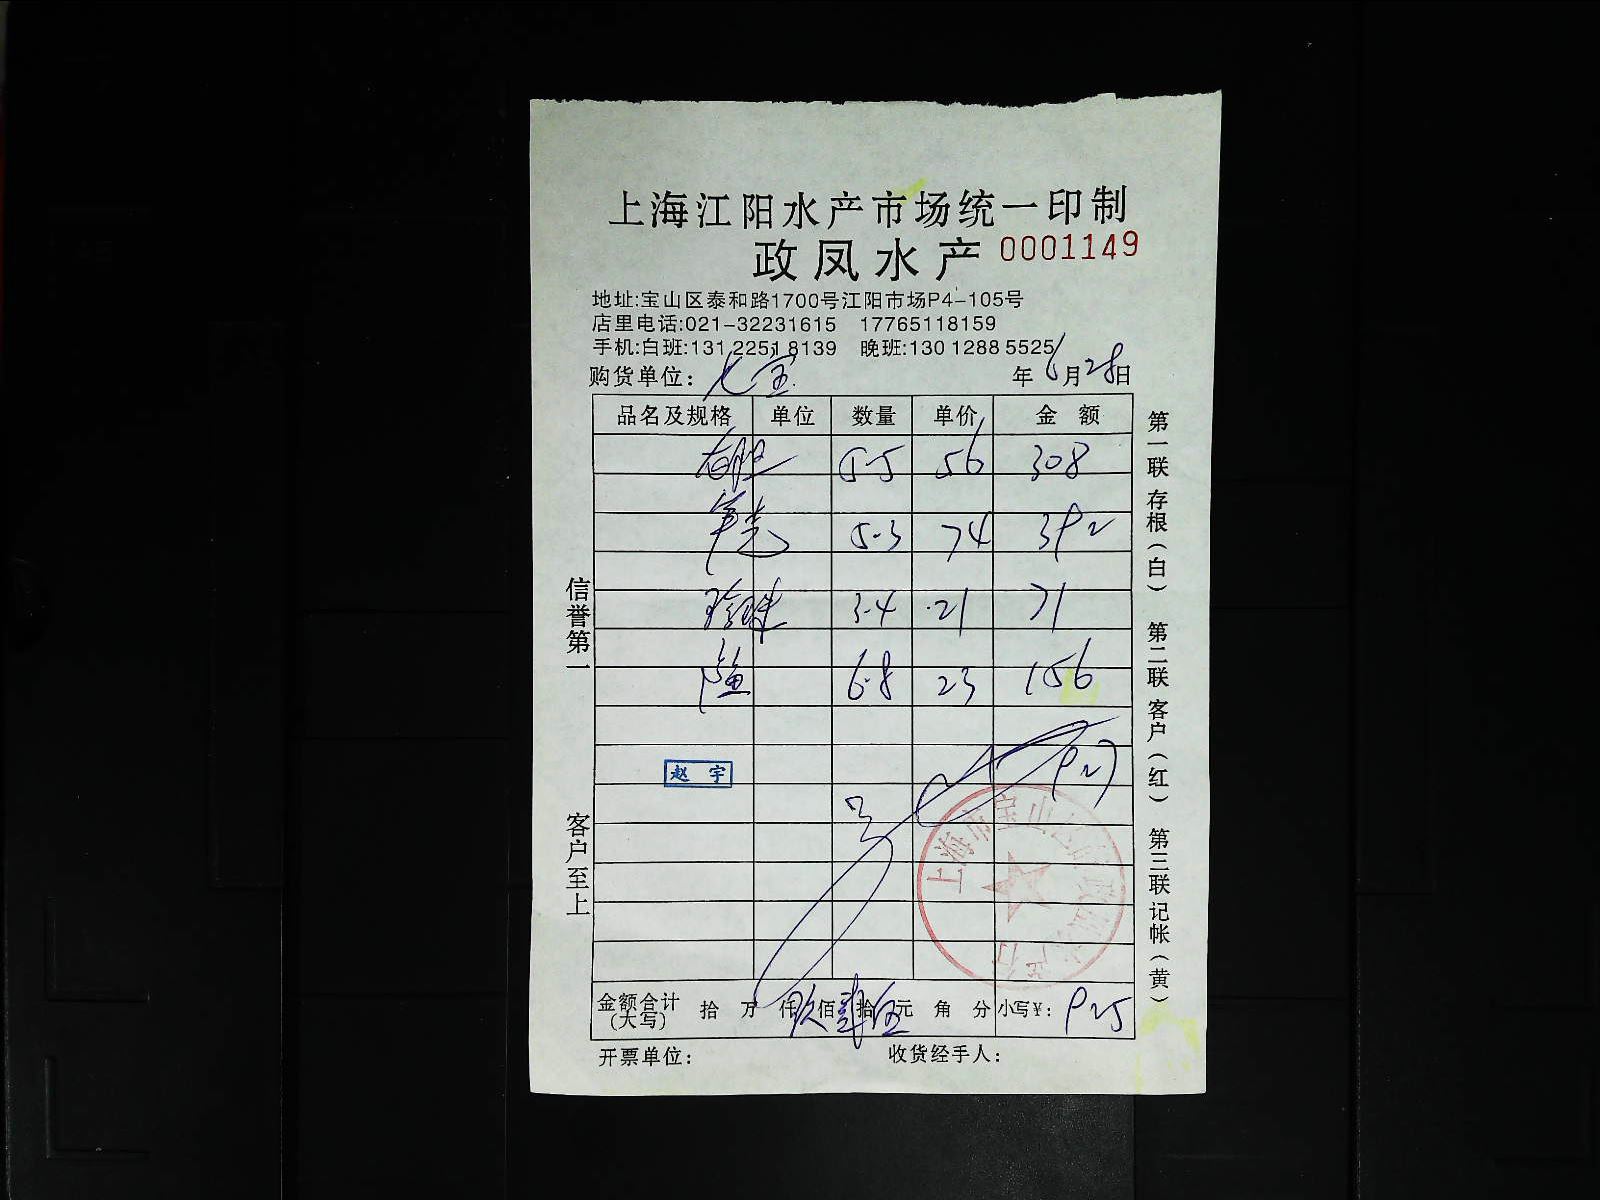 上海江阳水产市场统一印制
政凤水产 0001149
地址:宝山区泰和路1700号江阳市场P4-105号
店里电话:021-32231615 17765118159
手机:白班:131 2251 8139 晚班:130 1288 5525
购货单位: 七宝 年 6 月 28 日
品名及规格 单位 数量 单价 金额
5.5 56 308
5.3 74 392
珍珠 3.4 21 71
6.8 23 156
927
赵宇
金额合计(大写) 拾 万 仟 玖 佰 贰 拾 伍 元 角 分 小写¥: 925
开票单位: 收货经手人:
信誉第一 客户至上
第一联存根(白) 第二联客户(红) 第三联记帐(黄)
上海市宝山区